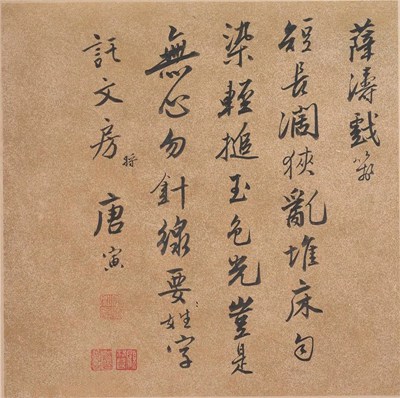 薛濤戲箋
短長濶狹亂堆床勻
染輕搥玉色光豈是
無心勿針線要姓字
託文房將 唐寅